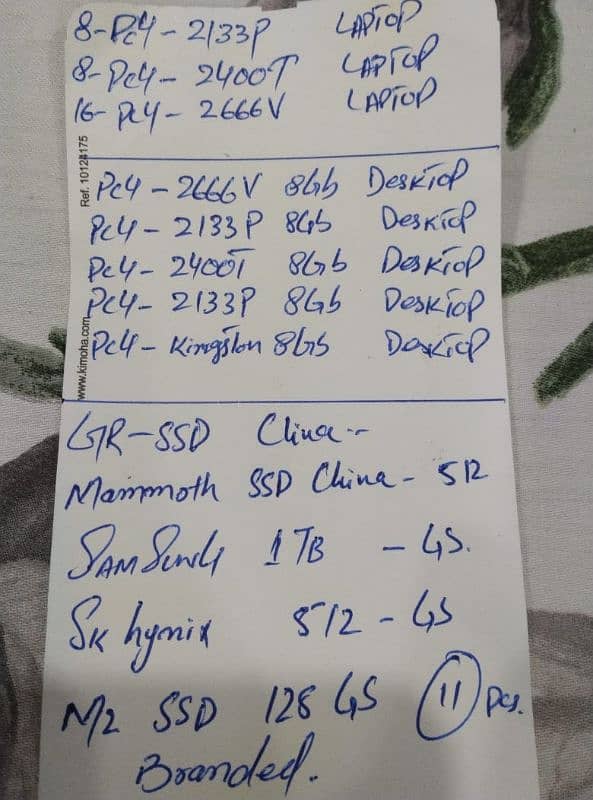 8-Pc4-2133P LAPTOP
8-Pc4-2400T LAPTOP
16-Pc4-2666V LAPTOP
Ref. 10124175
Pc4-2666V 8Gb DeskTOP
Pc4-2133P 8Gb DeskTOP
Pc4-2400T 8Gb DeskTOP
Pc4-2133P 8Gb DeskTOP
Pc4-Kingston 8Gb DeskTOP
www.kimoha.com
GR-SSD China--
Mammoth SSD China-512
SAMSUNG 1TB -GS.
SK hynix 512-GS
M/2 SSD 128 GS 11 pcs.
Branded.